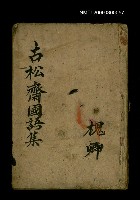 古松齋國語集
槐卿